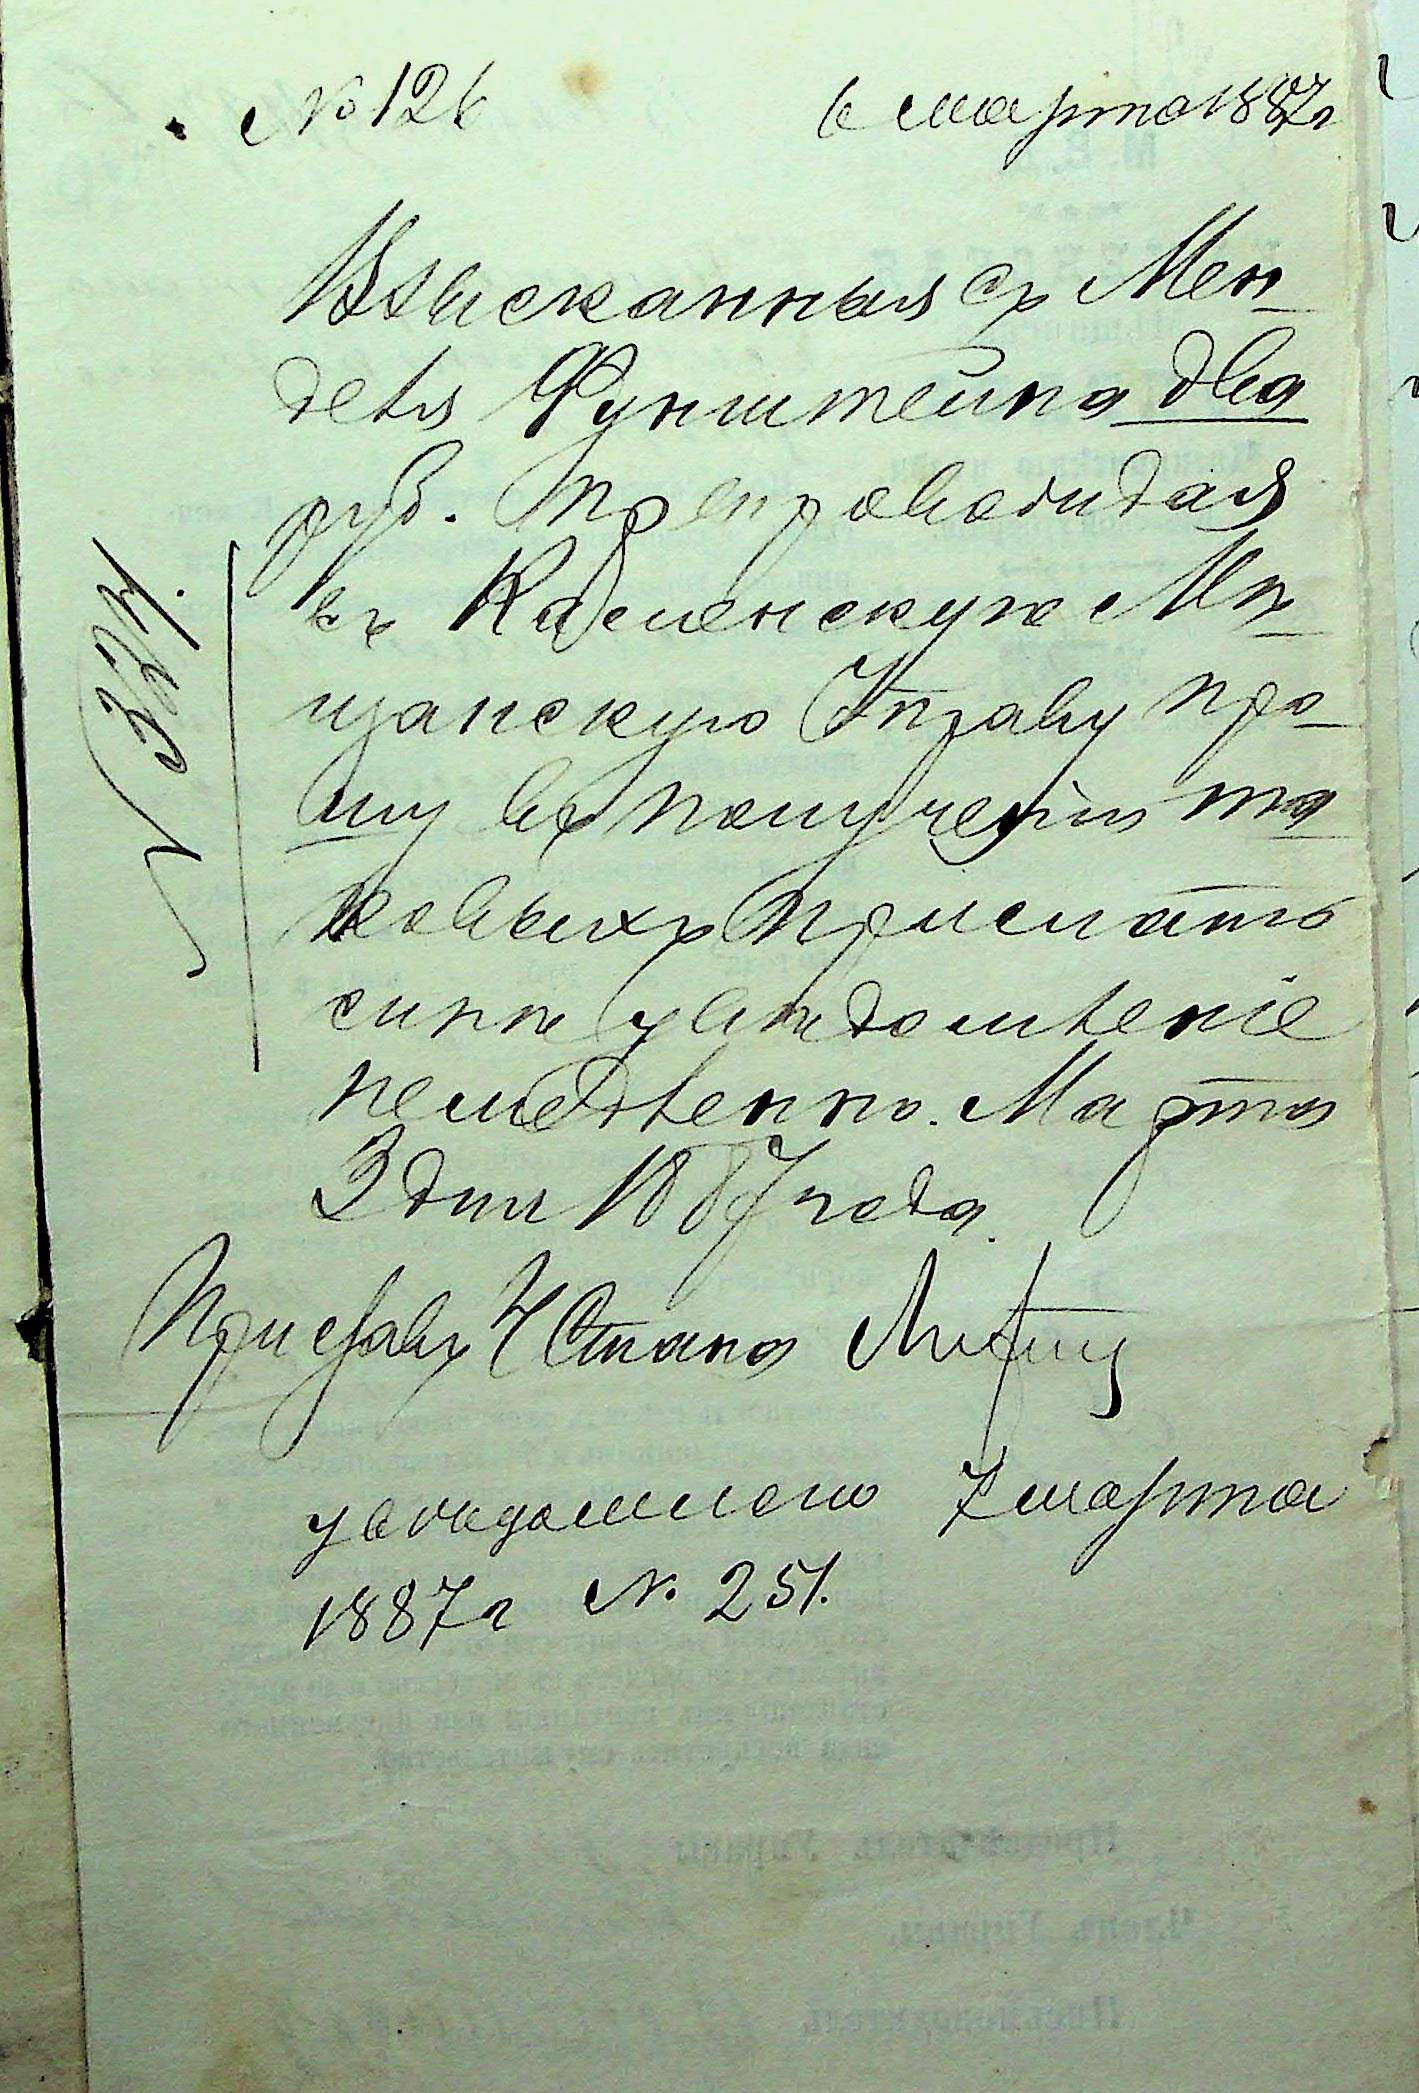 № 126
6 марта 1887 г
Взысканныя съ Мен-
деля Функштейна два
руб. Препровождая
въ Каменскую Мѣ-
щанскую Управу про-
шу въ получении та-
ковыхъ прислать
мнѣ увѣдомленіе
немедленно. Марта
3 дня 1887 года.
Приставъ Стана
№ 327.
увѣдомлено 7 марта
1887 г № 251.